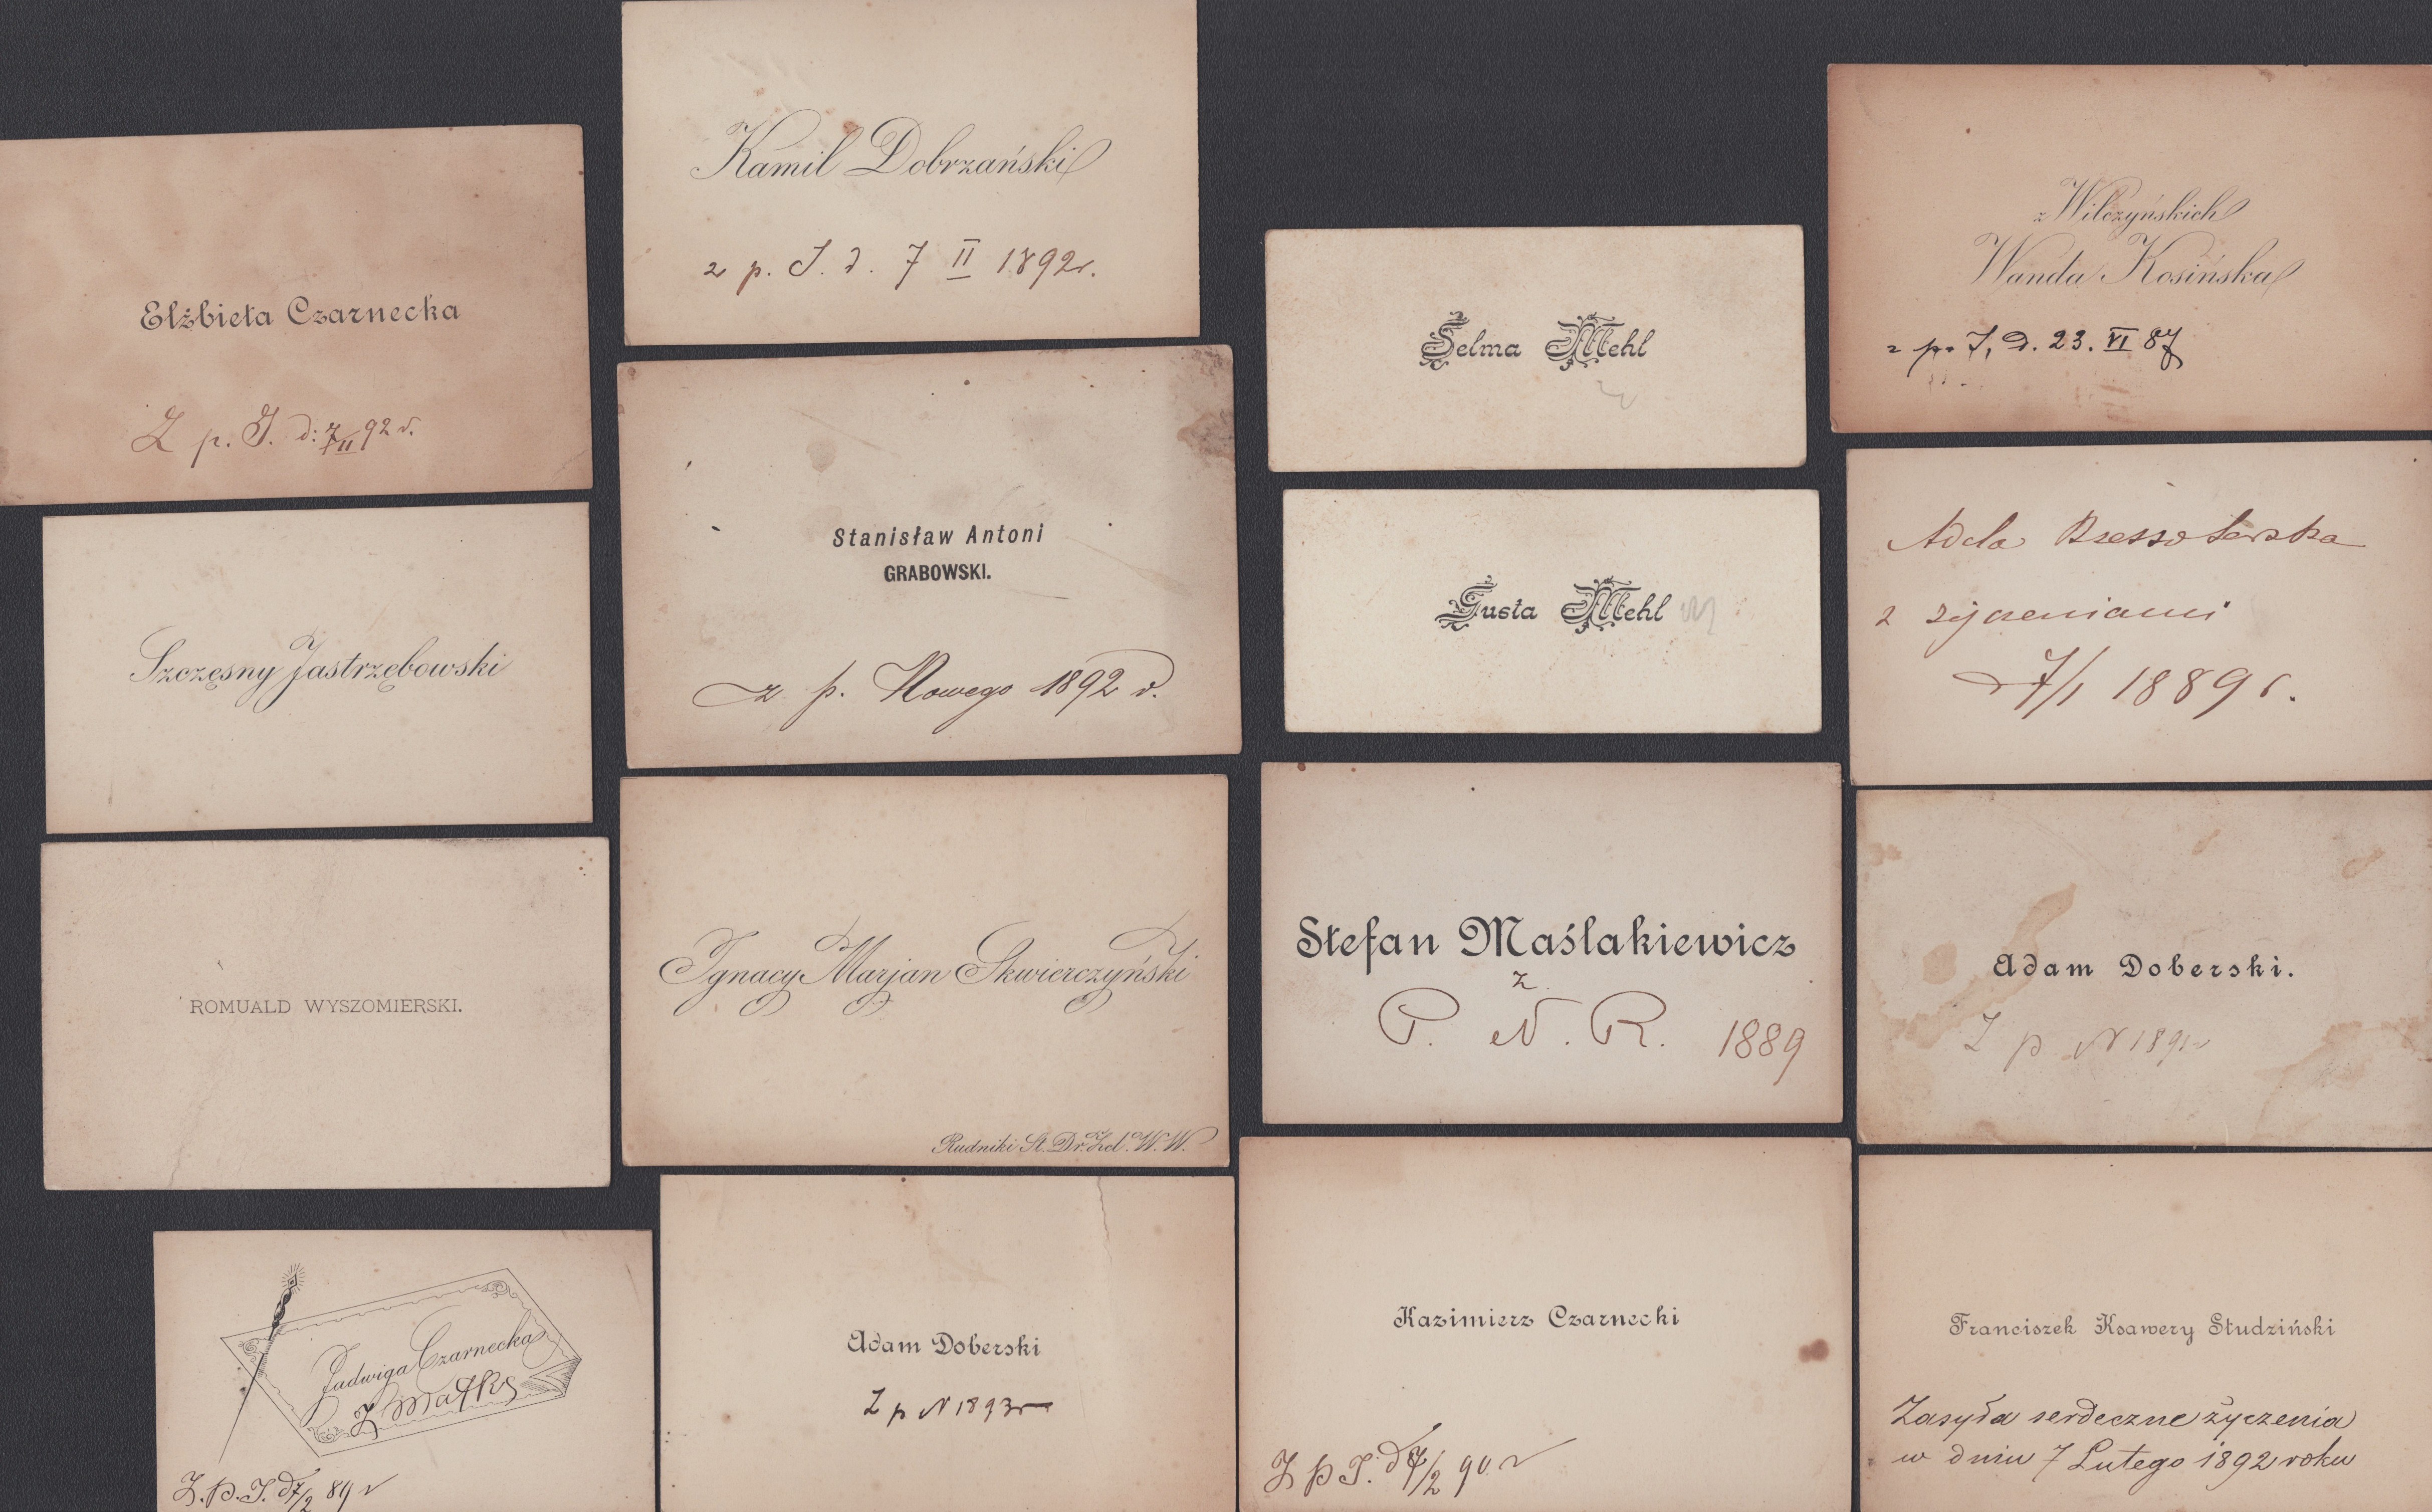 Elżbieta Czarnecka
Z p. I. d: 7/II 92 r.
Szczęsny Jastrzębowski
ROMUALD WYSZOMIERSKI.
Jadwiga Czarnecka
Z Matką
Z. P. I. d 7/2 89 r
Kamil Dobrzański
z p. I. d. 7 II 1892r.
Stanisław Antoni
GRABOWSKI.
z p. Nowego 1892 r.
Ignacy Marjan Skwierczyński
Rudniki St. Dr. Żel. W. W.
Adam Doberski
Z p N 1893r
Selma Mehl
Gusta Mehl
Stefan Maślakiewicz
z
P. N. R. 1889
Kazimierz Czarnecki
Z P I. d 7/2 90 r
z Wilczyńskich
Wanda Kosińska
z p. I, d. 23. VI 87
Adela
z życzeniami
d 7/1 1889 r.
Adam Doberski.
Z p N
Franciszek Ksawery Studziński
Zasyła serdeczne życzenia
w dniu 7 Lutego 1892 roku